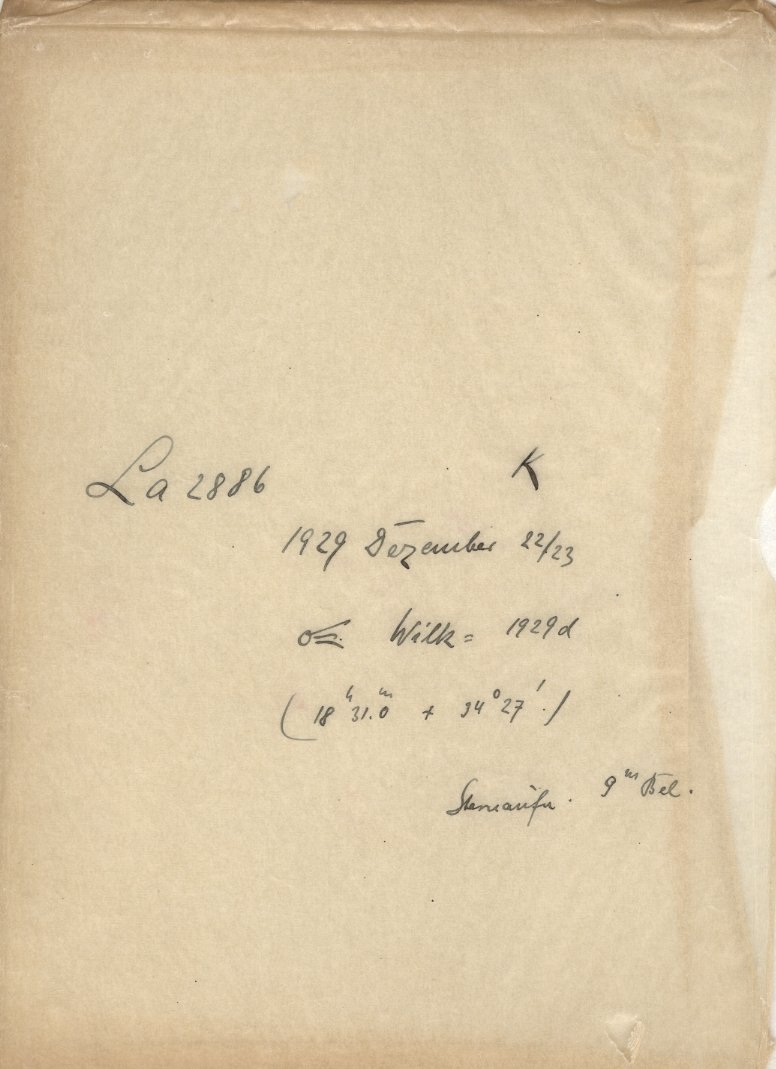 La 2886 K
1929 Dezember 22/23
☄ Wilk = 1929d
(18ʰ 31.ᵐ0 + 34° 27'.)
Sternaufn. 9ᵐ Bel.